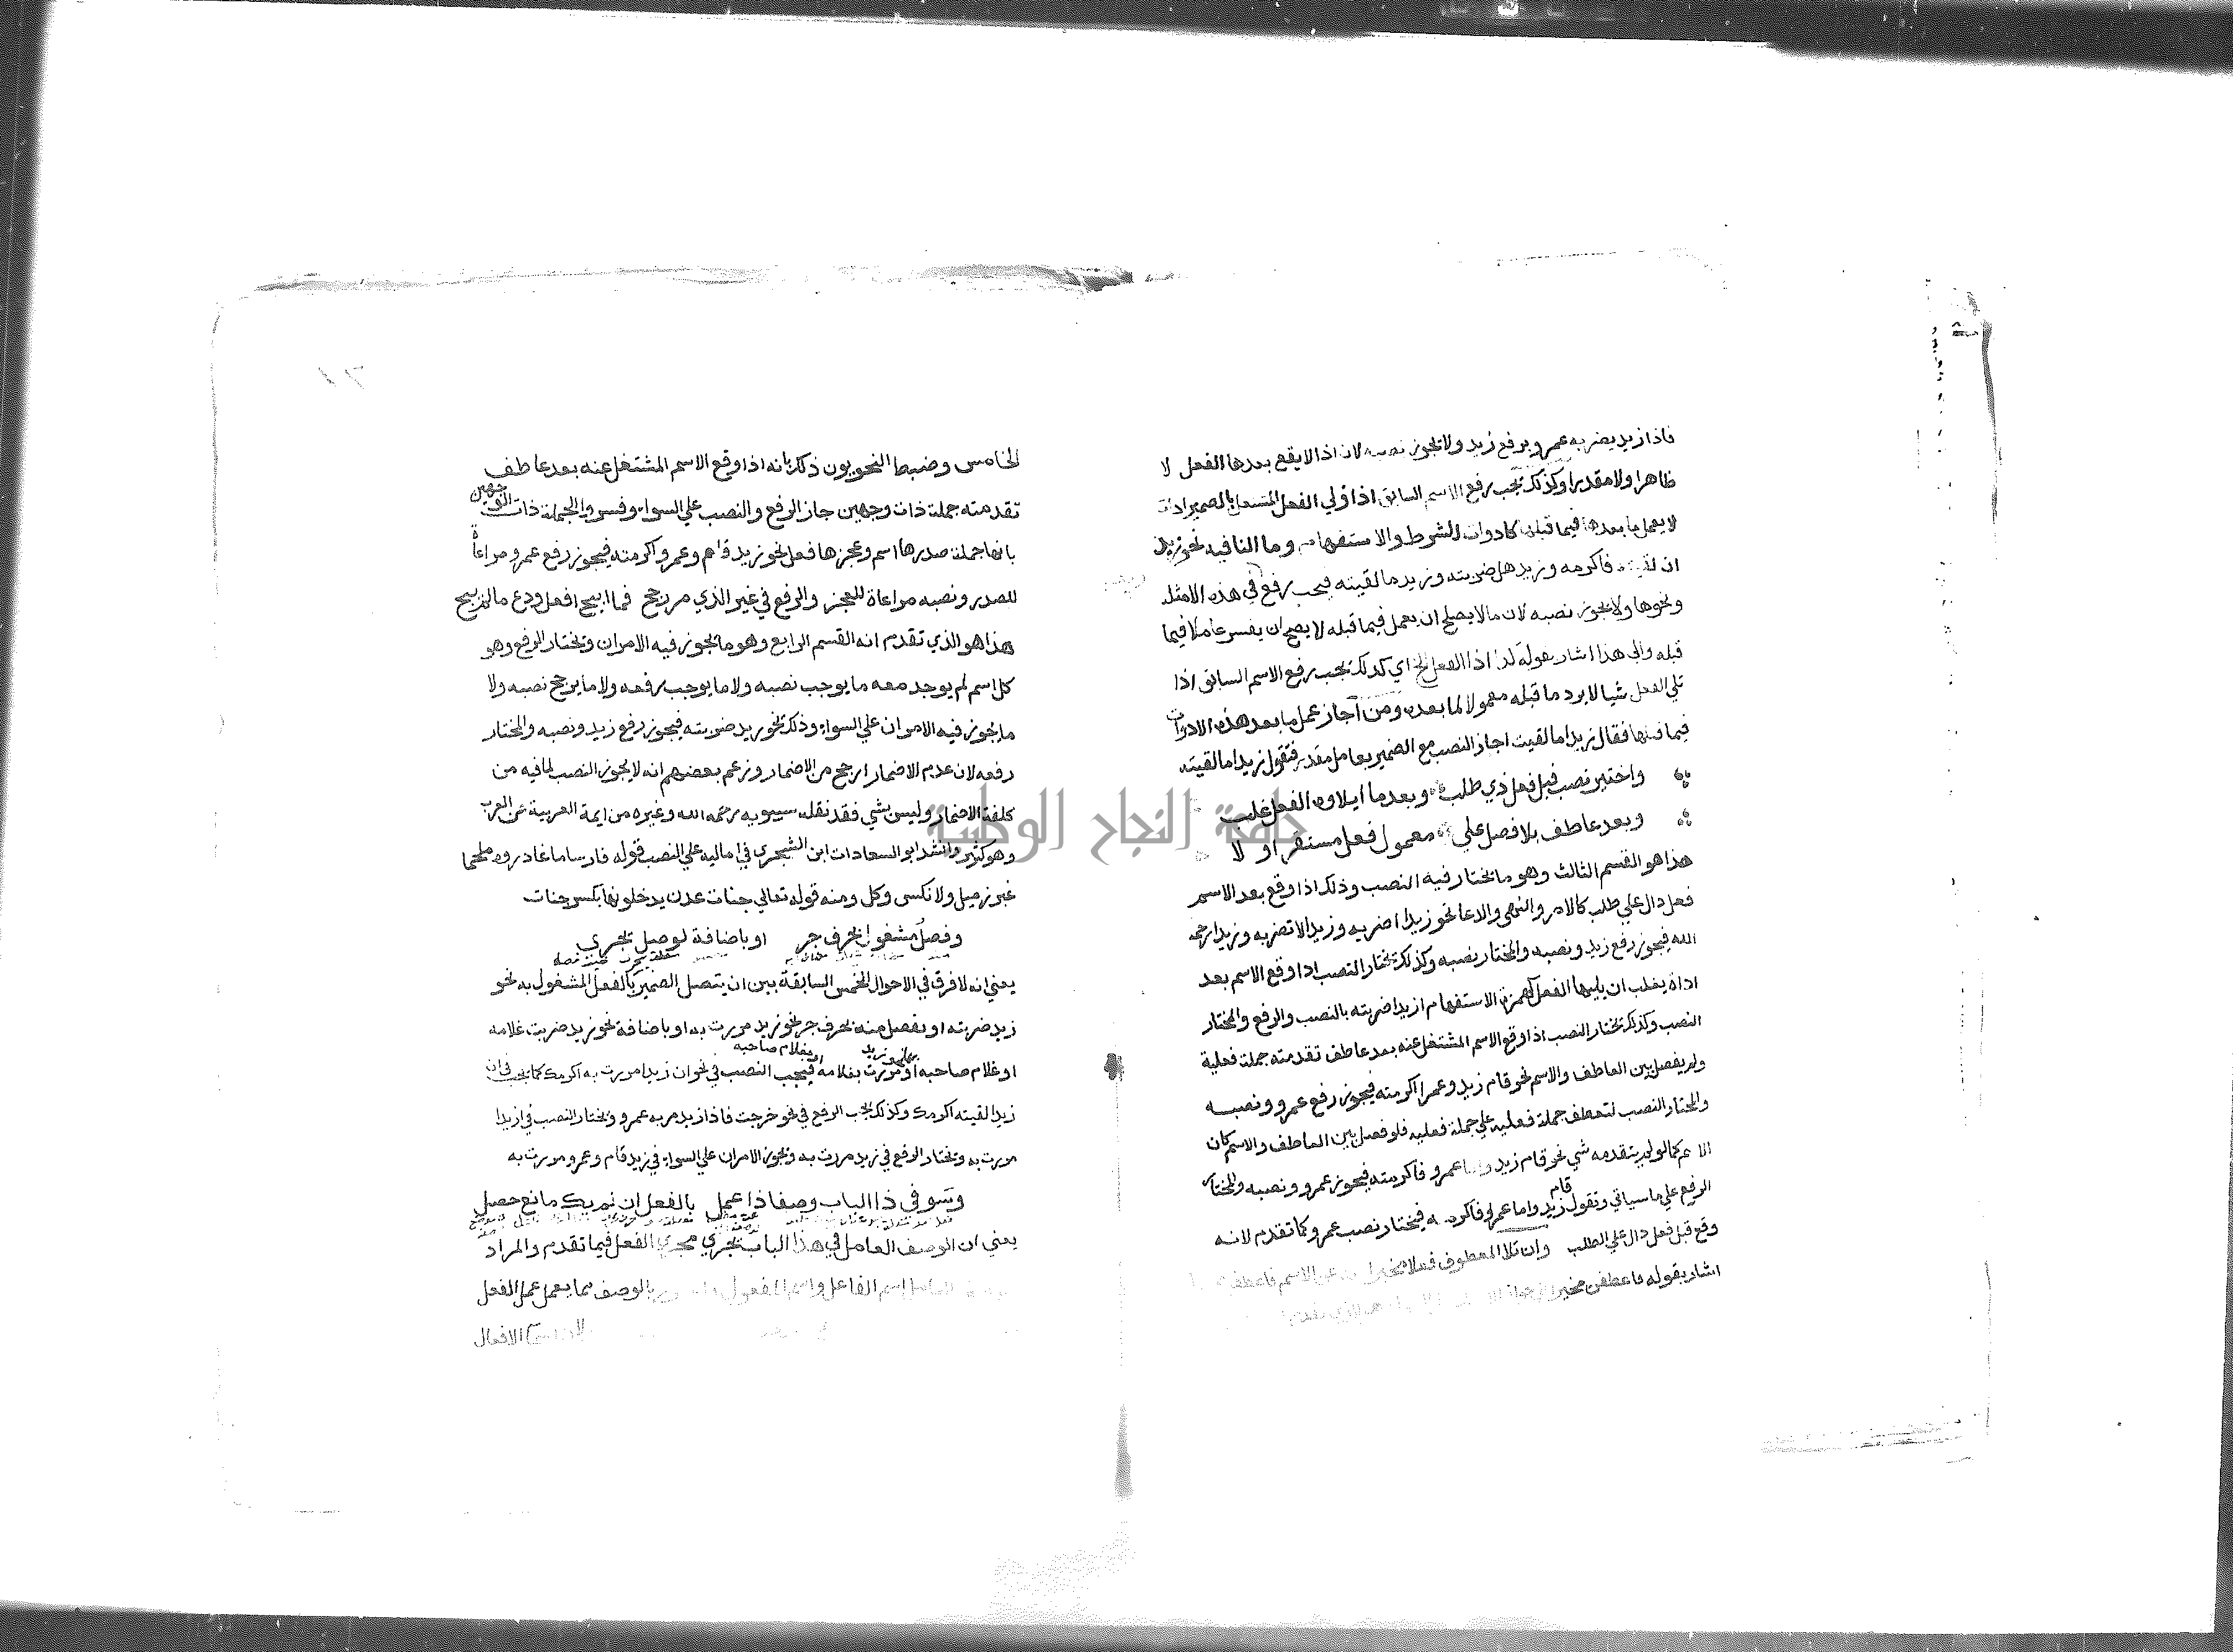 فاذا زيد يضربه عمرو برفع زيد ولا يجوز نصبه لان اذا لا يقع بعدها الفعل لا
ظاهرا ولا مقدرا وكذلك يجب رفع الاسم السابق اذا ولي الفعل المشتغل بالضمير ادات
لا يعمل ما بعدها فيما قبلها كادوات الشرط والاستفهام وما النافيه نحو زيد
ان لقيته فاكرمه وزيد هل ضربته وزيد ما لقيته فيجب رفع في هذه الامثله
ونحوها ولا يجوز نصبه لان ما لا يصلح ان يعمل فيما قبله لا يصح ان يفسر عاملا فيما
قبله والى هذا اشار بقوله كذا اذا الفعل الخ اي كذلك يجب رفع الاسم السابق اذا
تلي الفعل شيا لا يرد ما قبله معمولا لما بعده ومن اجاز عمل ما بعد هذه الادوات
فيما قبلها فقال زيدا ما لقيت اجاز النصب مع الضمير بعامل مقدر فتقول زيدا ما لقيته
واختير نصب قبل فعل ذي طلب وبعد ما ايلاوه الفعل غلب
وبعد عاطف بلا فصل علي معمول فعل مستقر او لا
هذا هو القسم الثالث وهو ما يختار فيه النصب وذلك اذا وقع بعد الاسم
فعل دال علي طلب كالامر والنهي والدعا نحو زيدا اضربه وزيدا لا تضربه وزيدا رحمه
الله فيجوز رفع زيد ونصبه والمختار نصبه وكذلك يختار النصب اذا وقع الاسم بعد
اداة يغلب ان يليها الفعل كهمزة الاستفهام ازيدا ضربته بالنصب والرفع والمختار
النصب وكذلك يختار النصب اذا وقع الاسم المشتغل عنه بعد عاطف تقدمته جملة فعلية
ولم يفصل بين العاطف والاسم نحو قام زيد وعمرا اكرمته فيجوز رفع عمرو ونصبه
والمختار النصب لتعطف جملة فعليه علي جملة فعليه فلو فصل بين العاطف والاسم كان
الاسم كما لو لم يتقدمه شي نحو قام زيد واما عمرو فاكرمته فيجوز عمرو ونصبه والمختار
الرفع علي ما سياتي وتقول قام زيد واما عمرا فاكرمه فيختار نصب عمرو كما تقدم لانه
وقع قبل فعل دال علي الطلب وان تلا المعطوف فعلا مخبرا به عن الاسم فاعطفن
اشار بقوله فاعطفن مخيرا
الخامس وضبط النحويون ذلك بانه اذا وقع الاسم المشتغل عنه بعد عاطف
تقدمته جملة ذات وجهين جاز الرفع والنصب علي السواء وفسروا الجملة ذات الوجهين
بانها جملة صدرها اسم وعجزها فعل نحو زيد قام وعمرو اكرمته فيجوز رفع عمرو مراعاة
للصدر ونصبه مراعاة للعجز والرفع في غير الذي مر رجح فما ابيح افعل ودع ما لم يبح
هذا هو الذي تقدم انه القسم الرابع وهو ما يجوز فيه الامران ويختار الرفع وهو
كل اسم لم يوجد معه ما يوجب نصبه ولا ما يوجب رفعه ولا ما يرجح نصبه ولا
ما يجوز فيه الامران علي السواء وذلك نحو زيد ضربته فيجوز رفع زيد ونصبه والمختار
رفعه لان عدم الاضمار ارجح من الاضمار وزعم بعضهم انه لا يجوز النصب لما فيه من
كلفة الاضمار وليس بشي فقد نقله سيبويه رحمه الله وغيره من ايمة العربية عن العرب
وهو كثير وانشد ابو السعادات ابن الشجري في اماليه علي النصب قوله فارسا ما غادروه ملحما
غير زميل ولا نكس وكل ومنه قوله تعالي جنات عدن يدخلونها بكسر جنات
وفصل مشغول بحرف جر او باضافة لوصل يجري
يعني انه لا فرق في الاحوال الخمس السابقة بين ان يتصل الضمير بالفعل المشغول به نحو
زيد ضربته او يفصل منه بحرف جر نحو زيد مررت به او باضافة نحو زيد ضربت غلامه
او غلام صاحبه او مررت بغلامه او بغلام صاحبه فيجب النصب في نحو ان زيدا مررت به اكرمك كما يجب في ان
زيدا لقيته اكرمك وكذلك يجب الرفع في نحو خرجت فاذا زيد مر به عمرو ويختار النصب في ازيدا
مررت به ويختار الرفع في زيد مررت به ويجوز الامران علي السواء في زيد قام وعمرو مررت به
وسو في ذا الباب وصفا ذا عمل بالفعل ان لم يك مانع حصل
يعني ان الوصف العامل في هذا الباب يجري مجري الفعل فيما تقدم والمراد
بالوصف العامل اسم الفاعل واسم المفعول بالوصف مما يعمل عمل الفعل
الافعال
جامعة النجاح الوطنية